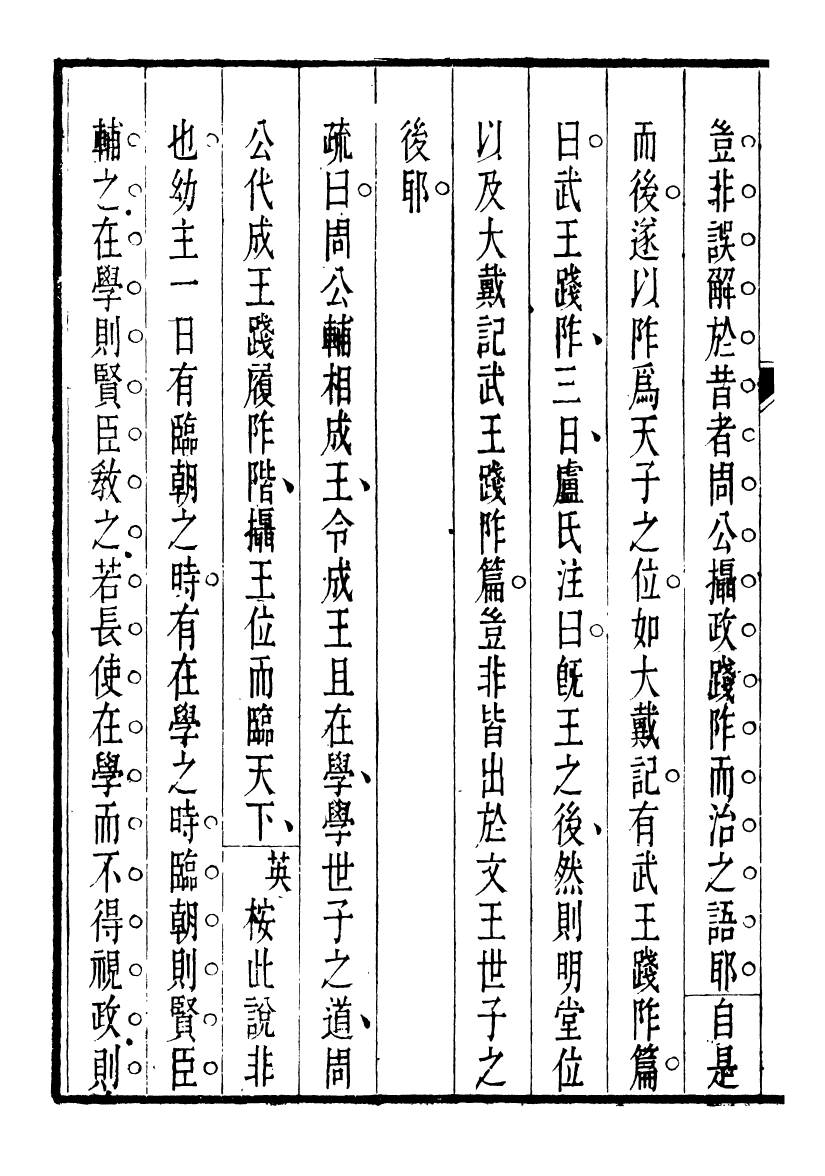 豈非誤解於昔者周公攝政踐阼而治之語耶自是
而後遂以阼爲天子之位如大戴記有武王踐阼篇
曰武王踐阼三日盧氏注曰旣王之後然則明堂位
以及大戴記武王踐阼篇豈非皆出於文王世子之
後耶
疏曰周公輔相成王令成王且在學學世子之道周
公代成王踐履阼階攝王位而臨天下英桉此說非
也幼主一日有臨朝之時有在學之時臨朝則賢臣
輔之在學則賢臣敎之若長使在學而不得視政則